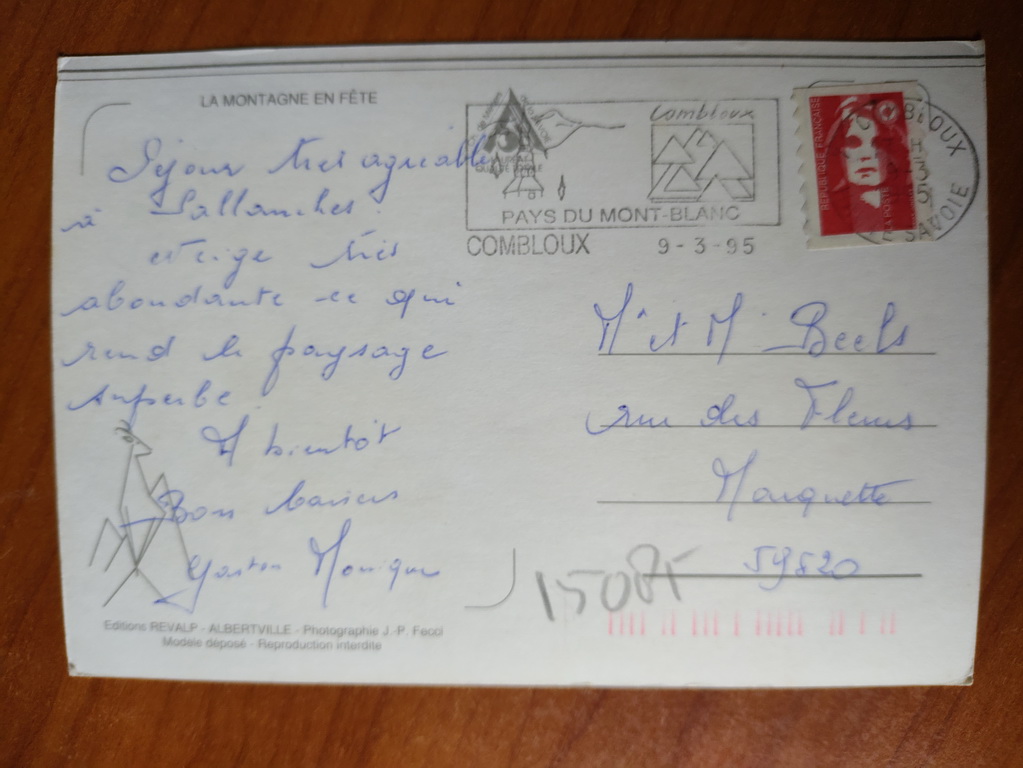 LA MONTAGNE EN FÊTE
Séjour très agréable
à Sallanches.
et neige très
abondante ce qui
rend le paysage
superbe.
A bientôt
Bons baisers
Gaston Monique
Editions REVALP - ALBERTVILLE - Photographie J.-P. Fecci
Modèle déposé - Reproduction interdite
Combloux
PAYS DU MONT-BLANC
COMBLOUX 9-3-95
REPUBLIQUE FRANÇAISE
LA POSTE
COMBLOUX
SAVOIE
Mr et Me Beels
rue des Fleurs
Marquette
59520